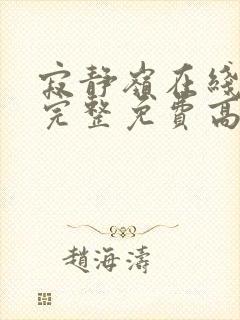 寂靜嶺在綫
完整免費高
趙海濤